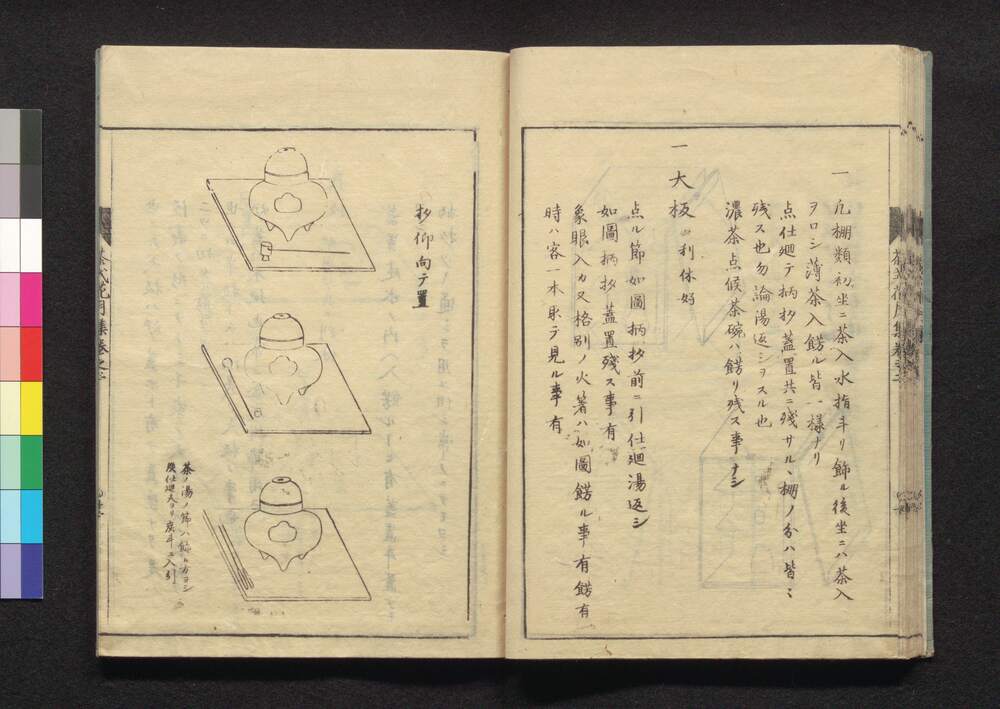 一 凡棚類初坐ニ茶入水指斗リ飾ル後坐ニハ茶入
ヲロシ薄茶入餝ル皆一様ナリ
点仕廻テ柄杓蓋置共ニ残サル、棚ノ分ハ皆〻
残ス也勿論湯返シヲスル也
濃茶点候茶碗ハ餝リ残ス事ナシ
一 大板 利休好
点ル節如圖柄杓前ニ引仕廻湯返シ
如圖柄杓蓋置残ス事有
象眼入カ又格別ノ火箸ハ如圖餝ル事有餝有
時ハ客一本取テ見ル事有
杓仰向テ置
茶ノ湯ノ節ハ餝ル方ヨシ
炭仕廻 ヨリ炭斗ニ入引